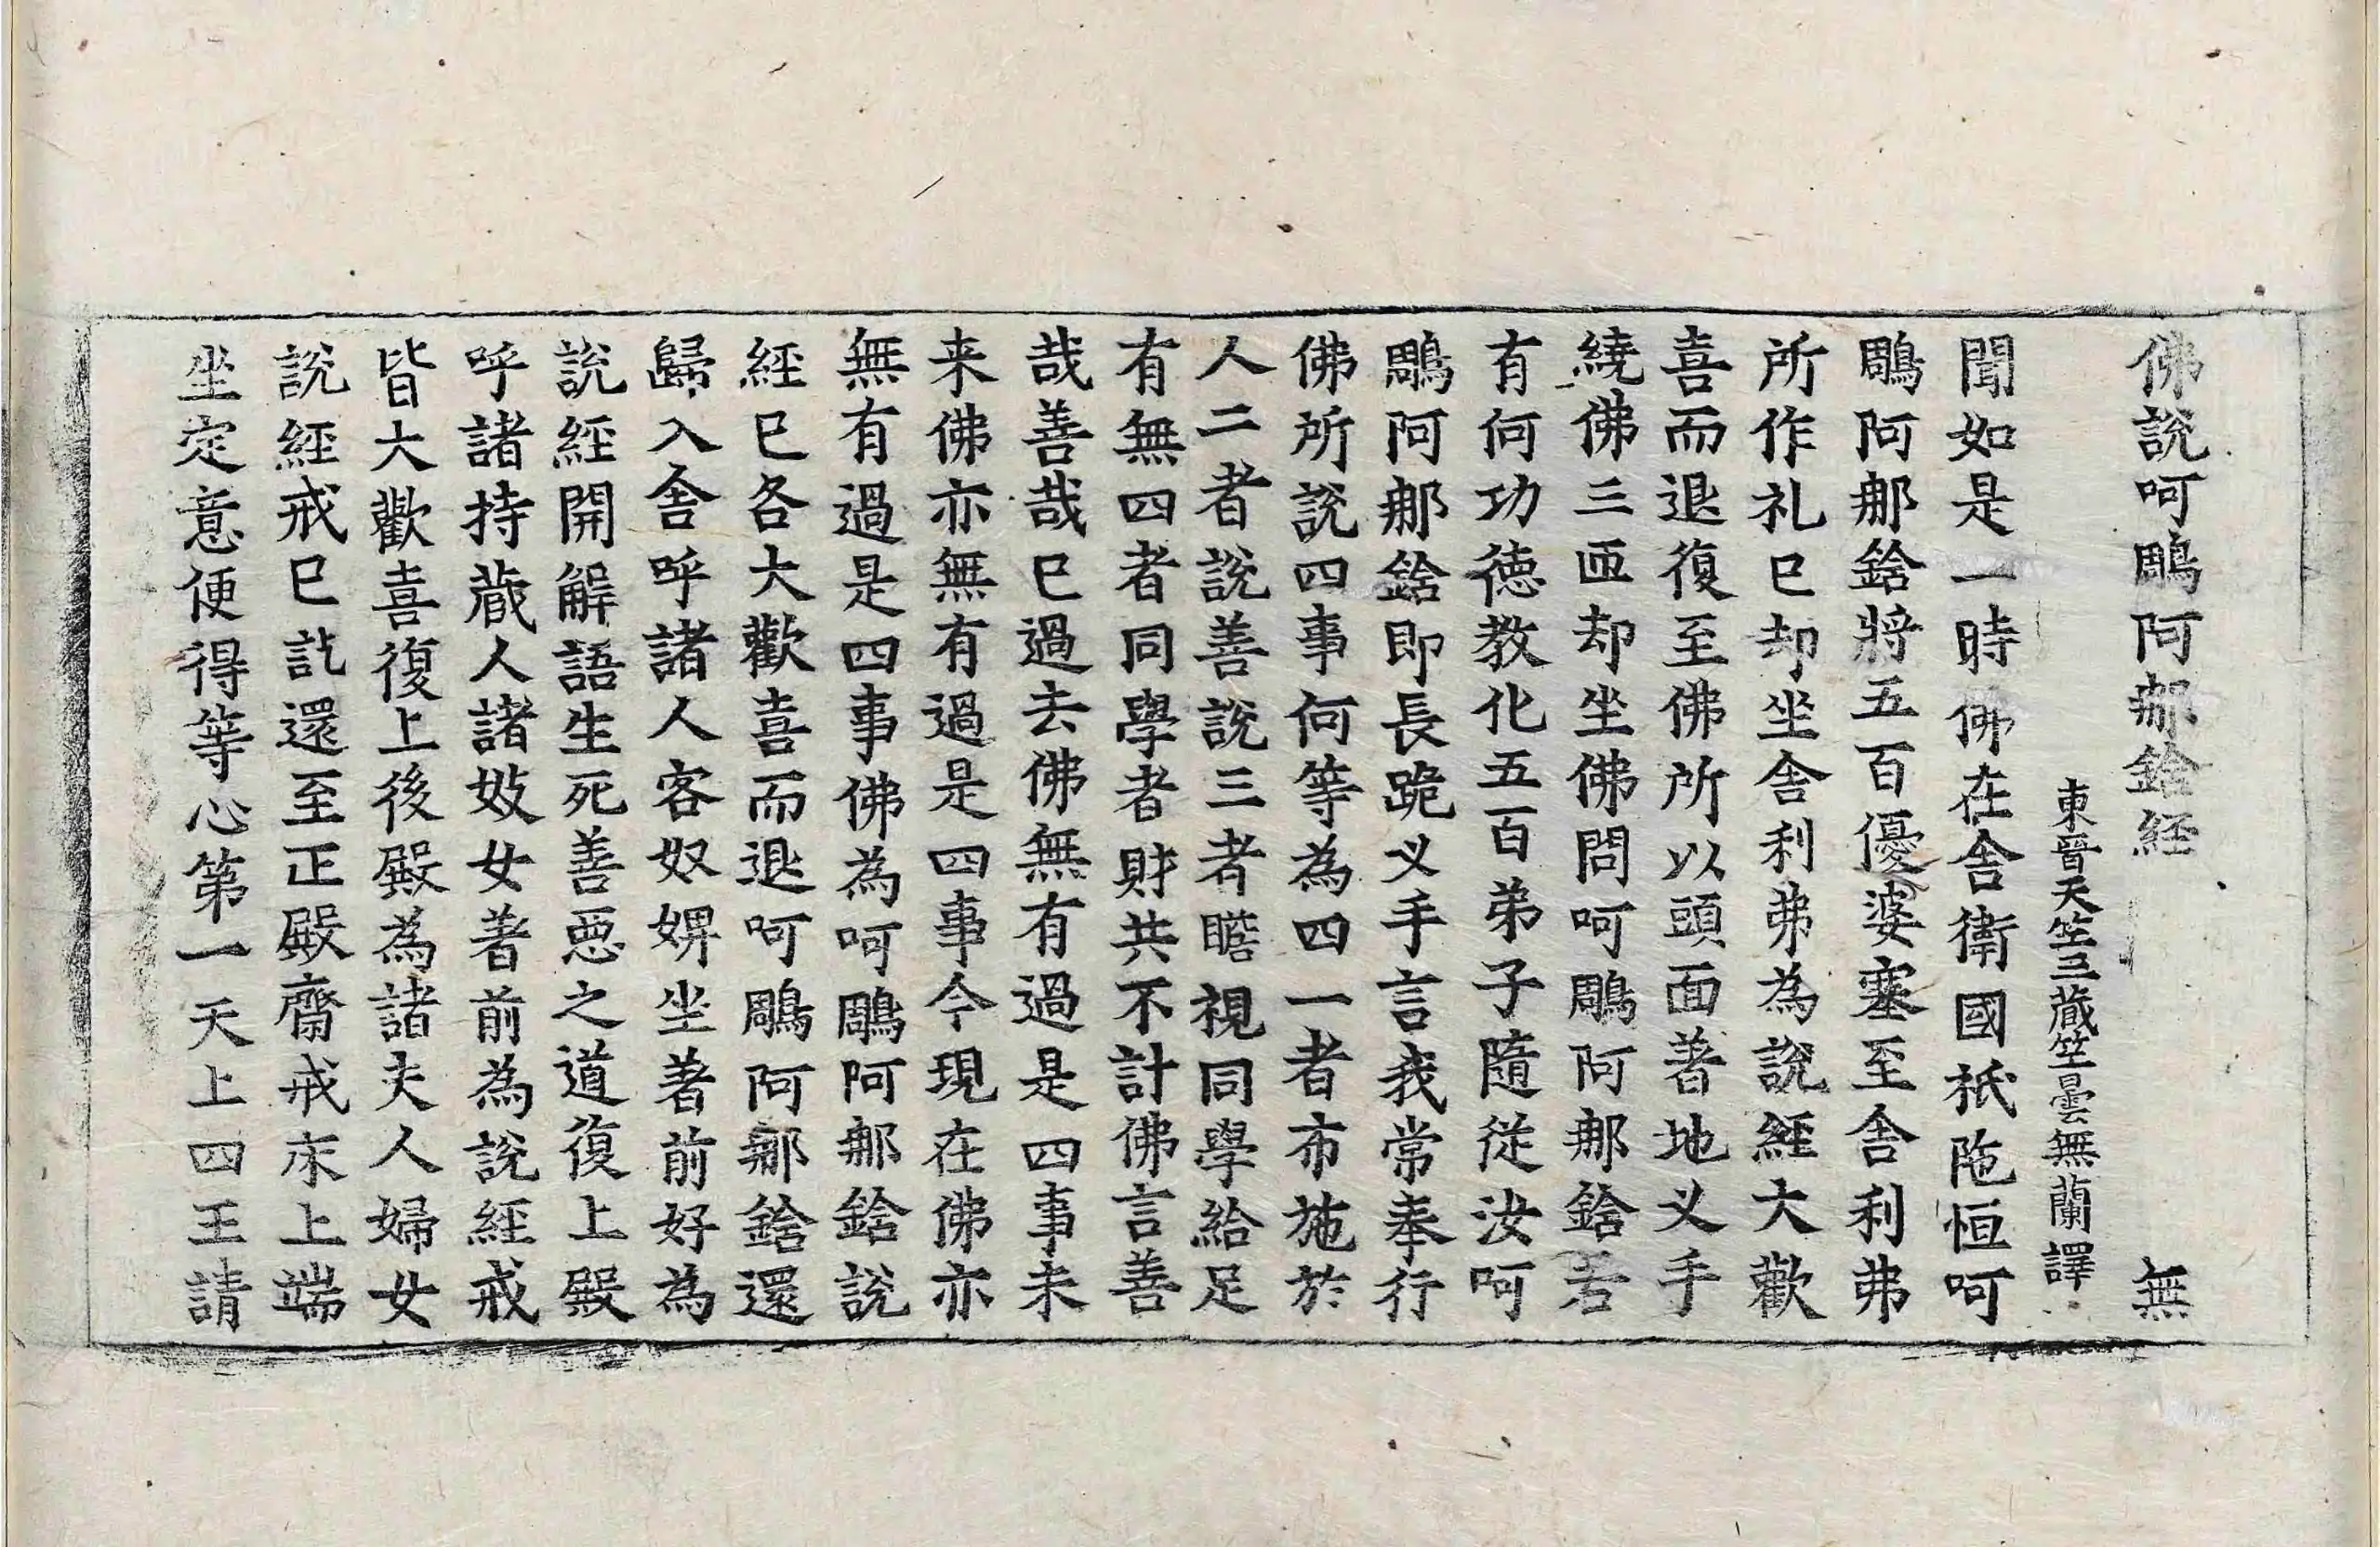 佛說呵鵰阿那鋡經 無
東晉天竺三藏竺曇無蘭譯
聞如是一時佛在舍衛國祇陁恒呵
鵰阿那鋡將五百優婆塞至舍利弗
所作礼已却坐舍利弗為說經大歡
喜而退復至佛所以頭面著地叉手
繞佛三匝却坐佛問呵鵰阿那鋡若
有何功德教化五百弟子隨從汝呵
鵰阿那鋡即長跪叉手言我常奉行
佛所說四事何等為四一者布施於
人二者說善說三者瞻視同學給足
有無四者同學者財共不計佛言善
哉善哉已過去佛無有過是四事未
来佛亦無有過是四事今現在佛亦
無有過是四事佛為呵鵰阿那鋡說
經已各大歡喜而退呵鵰阿那鋡還
歸入舍呼諸人客奴婢坐著前好為
說經開解語生死善惡之道復上殿
呼諸持藏人諸妓女著前為說經戒
皆大歡喜復上後殿為諸夫人婦女
說經戒已訖還至正殿齋戒床上端
坐定意便得等心第一天上四王請